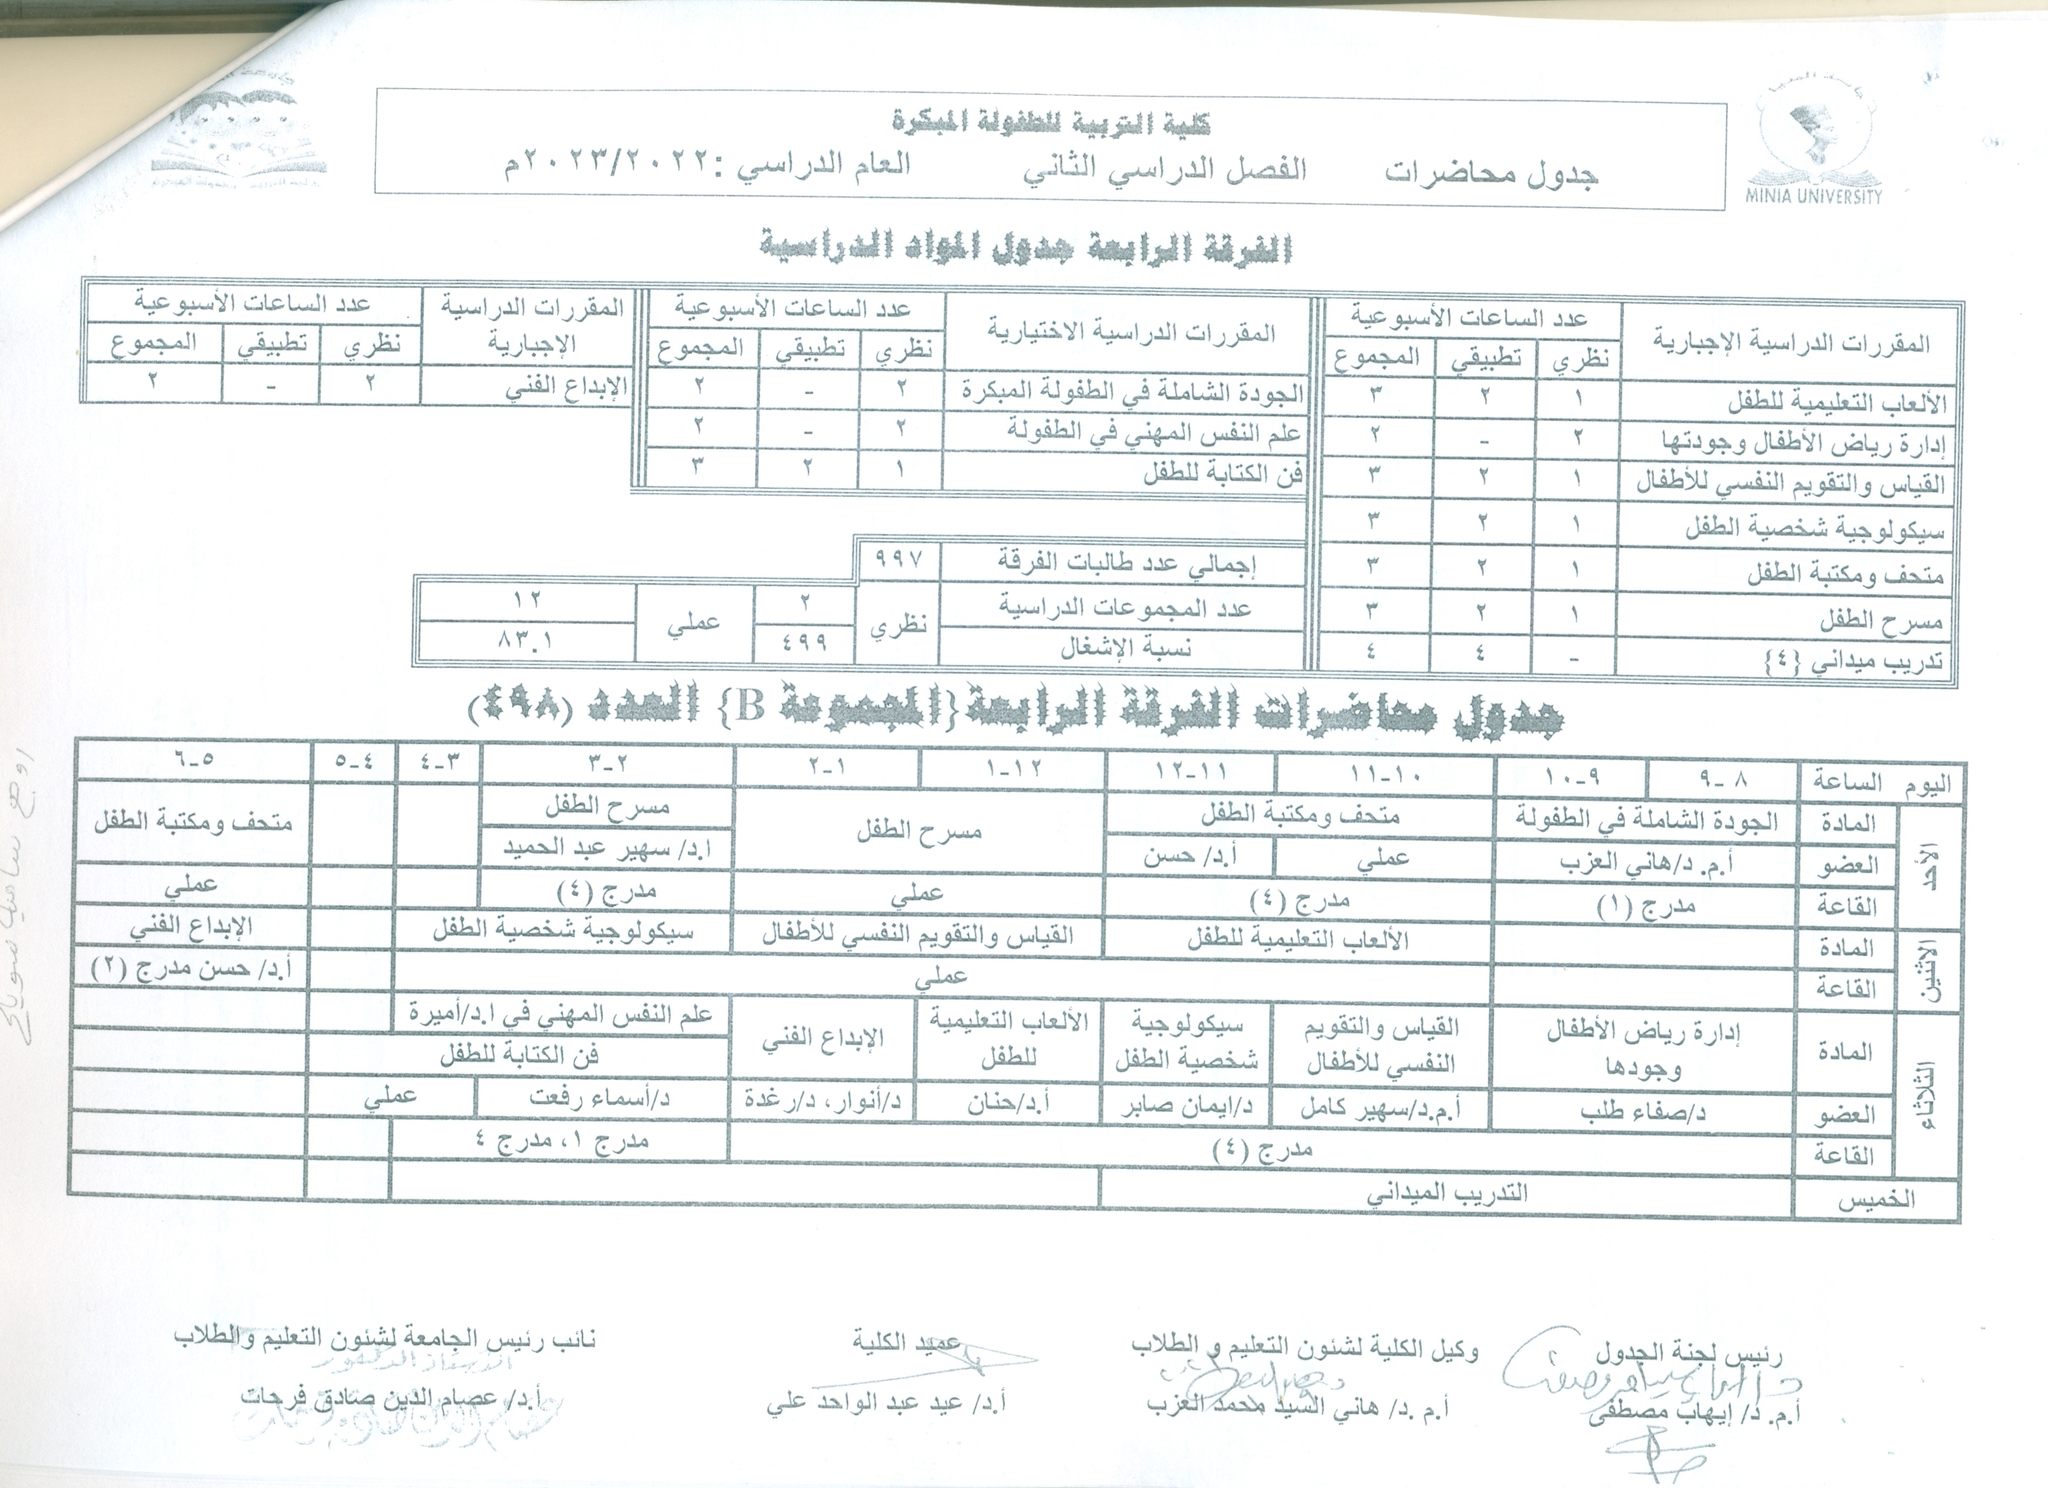 كلية التربية للطفولة المبكرة
جدول محاضرات الفصل الدراسي الثاني العام الدراسي :٢٠٢٣/٢٠٢٢م
MINIA UNIVERSITY
الفرقة الرابعة جدول المواد الدراسية
المقررات الدراسية الإجبارية عدد الساعات الأسبوعية
نظري تطبيقي المجموع
الألعاب التعليمية للطفل ١ ٢ ٣
إدارة رياض الأطفال وجودتها ٢ - ٢
القياس والتقويم النفسي للأطفال ١ ٢ ٣
سيكولوجية شخصية الطفل ١ ٢ ٣
متحف ومكتبة الطفل ١ ٢ ٣
مسرح الطفل ١ ٢ ٣
تدريب ميداني {٤} - ٤ ٤
المقررات الدراسية الاختيارية عدد الساعات الأسبوعية
نظري تطبيقي المجموع
الجودة الشاملة في الطفولة المبكرة ٢ - ٢
علم النفس المهني في الطفولة ٢ - ٢
فن الكتابة للطفل ١ ٢ ٣
المقررات الدراسية الإجبارية عدد الساعات الأسبوعية
نظري تطبيقي المجموع
الإبداع الفني ٢ - ٢
إجمالي عدد طالبات الفرقة ٩٩٧
عدد المجموعات الدراسية نظري ٢ عملي ١٢
نسبة الإشغال ٤٩٩ ٨٣.١
جدول محاضرات الفرقة الرابعة {المجموعة B} العدد (٤٩٨)
اليوم الساعة ٨-٩ ٩-١٠ ١٠-١١ ١١-١٢ ١٢-١ ١-٢ ٢-٣ ٣-٤ ٤-٥ ٥-٦
الأحد
المادة الجودة الشاملة في الطفولة متحف ومكتبة الطفل مسرح الطفل مسرح الطفل متحف ومكتبة الطفل
العضو أ.م.د/هاني العزب عملي أ.د/ حسن ا.د/ سهير عبد الحميد
القاعة مدرج (١) مدرج (٤) عملي مدرج (٤) عملي
الاثنين
المادة الألعاب التعليمية للطفل القياس والتقويم النفسي للأطفال سيكولوجية شخصية الطفل الإبداع الفني
القاعة عملي أ.د/ حسن مدرج (٢)
الثلاثاء
المادة إدارة رياض الأطفال وجودها القياس والتقويم النفسي للأطفال سيكولوجية شخصية الطفل الألعاب التعليمية للطفل الإبداع الفني علم النفس المهني في ا.د/أميرة
فن الكتابة للطفل
العضو د/صفاء طلب أ.م.د/سهير كامل د/ايمان صابر أ.د/حنان د/أنوار، د/رغدة د/أسماء رفعت عملي
القاعة مدرج (٤) مدرج ١، مدرج ٤
الخميس التدريب الميداني
رئيس لجنة الجدول وكيل الكلية لشئون التعليم و الطلاب عميد الكلية نائب رئيس الجامعة لشئون التعليم والطلاب
أ.م.د/ إيهاب مصطفى أ.م.د/ هاني السيد محمد العزب أ.د/ عيد عبد الواحد علي أ.د/ عصام الدين صادق فرحات